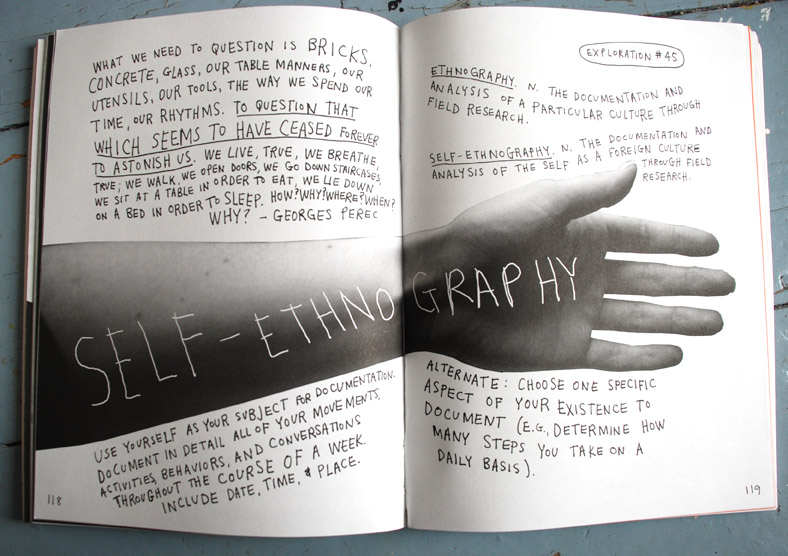 WHAT WE NEED TO QUESTION IS BRICKS,
CONCRETE, GLASS, OUR TABLE MANNERS, OUR
UTENSILS, OUR TOOLS, THE WAY WE SPEND OUR
TIME, OUR RHYTHMS. TO QUESTION THAT
WHICH SEEMS TO HAVE CEASED FOREVER
TO ASTONISH US. WE LIVE, TRUE, WE BREATHE,
TRUE; WE WALK, WE OPEN DOORS, WE GO DOWN STAIRCASES,
WE SIT AT A TABLE IN ORDER TO EAT, WE LIE DOWN
ON A BED IN ORDER TO SLEEP. HOW? WHY? WHERE? WHEN?
WHY? – GEORGES PEREC
SELF-ETHNO
USE YOURSELF AS YOUR SUBJECT FOR DOCUMENTATION.
DOCUMENT IN DETAIL ALL OF YOUR MOVEMENTS,
ACTIVITIES, BEHAVIORS, AND CONVERSATIONS
THROUGHOUT THE COURSE OF A WEEK.
INCLUDE DATE, TIME, & PLACE.
118
EXPLORATION #45
ETHNOGRAPHY. N. THE DOCUMENTATION AND
ANALYSIS OF A PARTICULAR CULTURE THROUGH
FIELD RESEARCH.
SELF-ETHNOGRAPHY. N. THE DOCUMENTATION AND
ANALYSIS OF THE SELF AS A FOREIGN CULTURE
THROUGH FIELD
RESEARCH.
GRAPHY
ALTERNATE: CHOOSE ONE SPECIFIC
ASPECT OF YOUR EXISTENCE TO
DOCUMENT (E.G., DETERMINE HOW
MANY STEPS YOU TAKE ON A
DAILY BASIS).
119